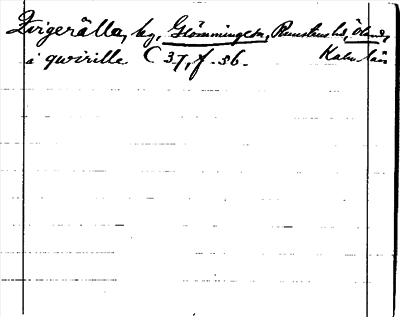 Qvigerälla, by, Glömminge sn, Runstens hd, Öland,
i qwirille C 37, f. 36. Kalm. län